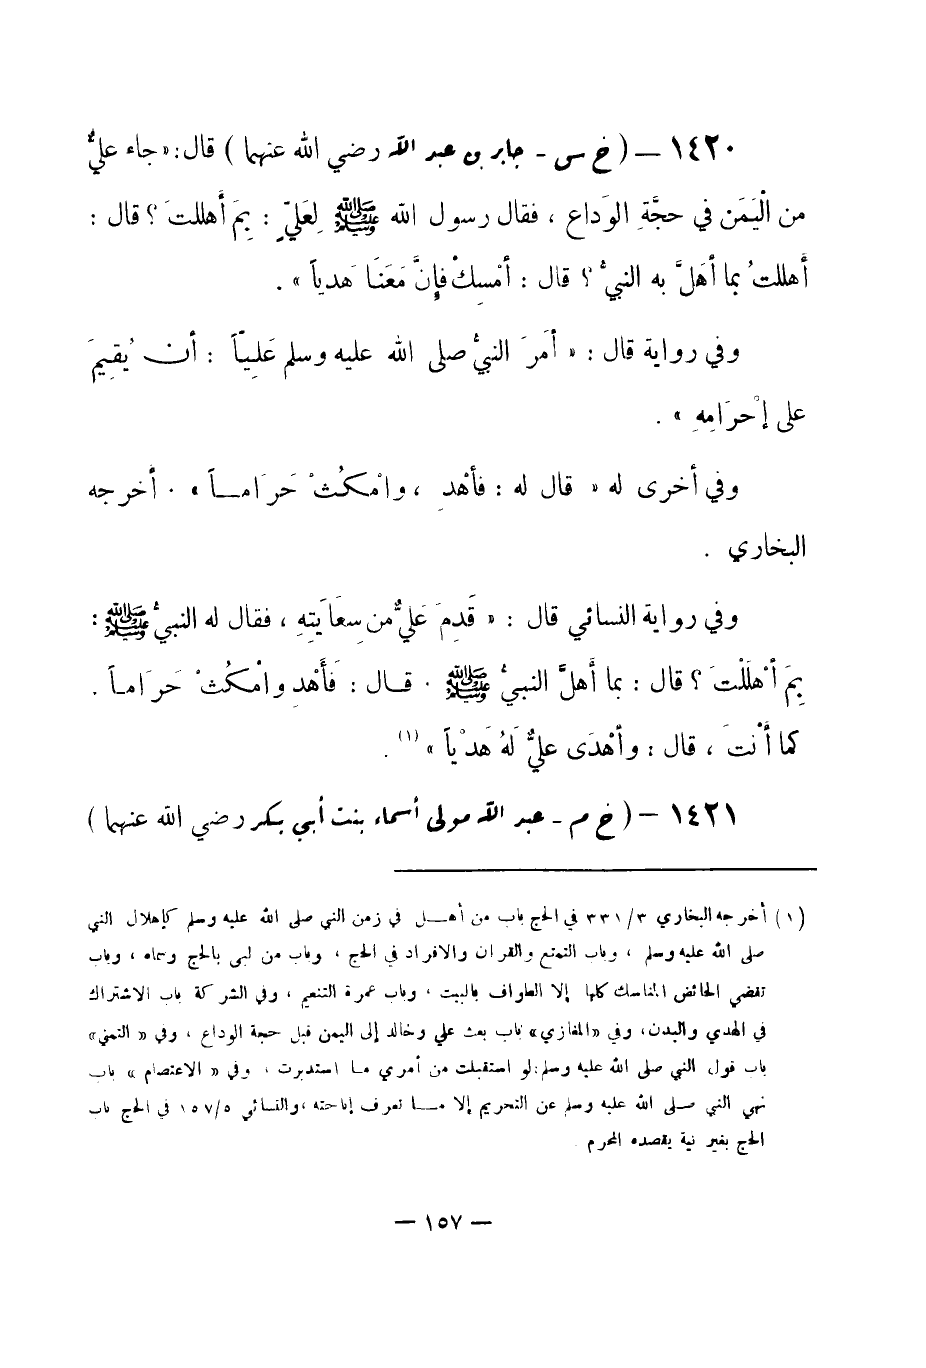 ١٤٢٠ – ( خ س - جابر بن عبد الله رضي الله عنهما ) قال : « جاء عليٌّ
من الْيَمَن في حجَّةِ الوَداع ، فقال رسول الله ﷺ لِعَليٍّ : بِمَ أَهللتَ ؟ قال :
أَهللتُ بما أَهَلَّ به النبيُّ ؟ قال : أَمْسِكْ فإِنَّ مَعَنَا هَدياً » .
وفي رواية قال : « أَمَرَ النبيُّ صلى الله عليه وسلم عَلِيّاً : أن يُقيِمَ
على إِحْرَامِهِ » .
وفي أخرى له « قال له : فأَهْدِ ، وامْكُثْ حَرَاماً » . أَخرجه
البخاري .
وفي رواية النسائي قال : « قَدِمَ عَليٌّ من سِعَايَتِهِ ، فقال له النبيُّ ﷺ :
بِمَ أَهْلَلْتَ ؟ قال : بما أَهلَّ النبيُّ ﷺ . قال : فَأَهْدِ وامْكُثْ حَرَاماً .
كما أَنْتَ ، قال : وأَهْدَى عليٌّ لَهُ هَدْياً » (١) .
١٤٢١ – ( خ م - عبد الله مولى أسماء بنت أبي بكر رضي الله عنهما )
(١) أخرجه البخاري ٣/ ٣٣١ في الحج باب من أهل في زمن النبي صلى الله عليه وسلم كإهلال النبي
صلى الله عليه وسلم ، وباب التمتع والقران والافراد في الحج ، وباب من لبى بالحج وسماه ، وباب
تقضي الحائض المناسك كلها إلا الطواف بالبيت ، وباب عمرة التنعيم ، وفي الشركة باب الاشتراك
في الهدي والبدن ، وفي « المغازي » باب بعث علي وخالد إلى اليمن قبل حجة الوداع ، وفي « التمني »
باب قول النبي صلى الله عليه وسلم : لو استقبلت من أمري ما استدبرت ، وفي « الاعتصام » باب
نهي النبي صلى الله عليه وسلم عن التحريم إلا ما تعرف إباحته ، والنسائي ١٥٧/٥ في الحج باب
الحج بغير نية يقصده المحرم
– ١٥٧ –